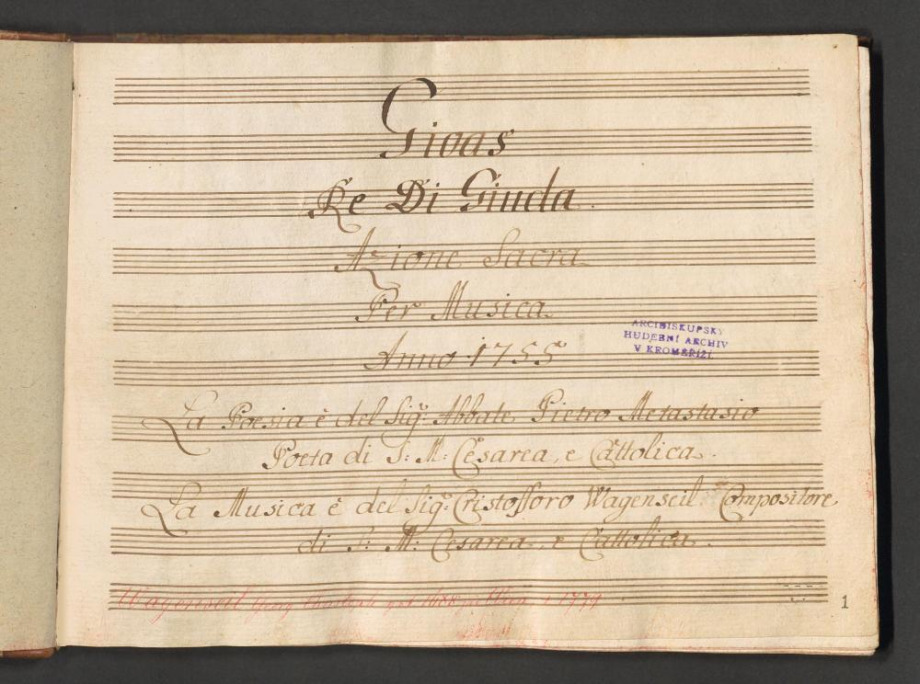 Gioas
Re Di Giuda.
Azione Sacra
Per Musica.
Anno 1755
La Poesia è del Sigr. Abbate Pietro Metastasio
Poeta di S: M: Cesarea, e Cattolica.
La Musica è del Sigr. Cristofforo Wagenseil Compositore,
di S: M: Cesarea, e Cattolica.
ARCIBISKUPSKÝ
HUDEBNÍ ARCHIV
V KROMĚŘÍŽI
Wagenseil Georg 1779
1